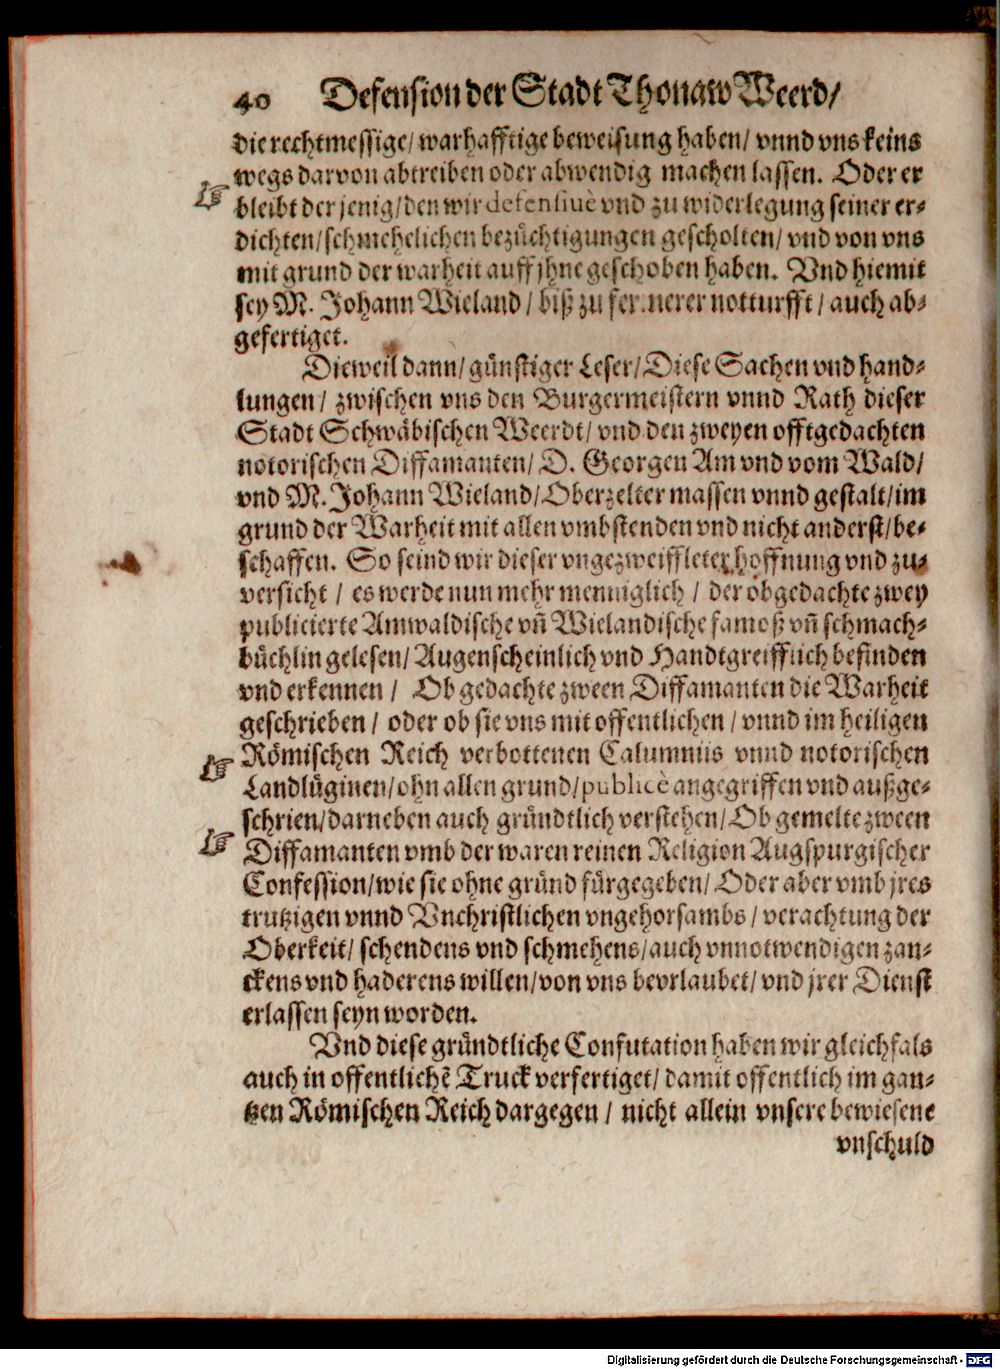 40 Defension der Stadt Thonaw Weerd/
die rechtmessige/ warhafftige beweisung haben/ vnnd vns keins
wegs darvon abtreiben oder abwendig machen lassen. Oder er
bleibt der jenig/ den wir defensiuè vnd zu widerlegung seiner er-
dichten/ schmehelichen bezüchtigungen gescholten/ vnd von vns
mit grund der warheit auff jhne geschoben haben. Vnd hiemit
sey M. Johann Wieland/ biß zu fernerer notturfft/ auch ab-
gefertiget.
Dieweil dann/ günstiger Leser/ Diese Sachen vnd hand-
lungen/ zwischen vns den Burgermeistern vnnd Rath dieser
Stadt Schwäbischen Weerdt/ vnd den zweyen offtgedachten
notorischen Diffamanten/ D. Georgen Am vnd vom Wald/
vnd M. Johann Wieland/ Oberzelter massen vnnd gestalt/ im
grund der Warheit mit allen vmbstenden vnd nicht anderst/ be-
schaffen. So seind wir dieser vngezweiffleter hoffnung vnd zu-
versicht/ es werde nun mehr menniglich/ der obgedachte zwey
publicierte Amwaldische vñ Wielandische famoß vñ schmach-
büchlin gelesen/ Augenscheinlich vnd Handtgreifflich befinden
vnd erkennen/ Ob gedachte zween Diffamanten die Warheit
geschrieben/ oder ob sie vns mit offentlichen/ vnnd im heiligen
Römischen Reich verbottenen Calumniis vnnd notorischen
Landlüginen/ ohn allen grund/ publicè angegriffen vnd außge-
schrien/ darneben auch gründtlich verstehen/ Ob gemelte zween
Diffamanten vmb der waren reinen Religion Augspurgischer
Confession/ wie sie ohne gründ fürgegeben/ Oder aber vmb jres
trutzigen vnnd Vnchristlichen vngehorsambs/ verachtung der
Oberkeit/ schendens vnd schmehens/ auch vnnotwendigen zan-
ckens vnd haderens willen/ von vns bevrlaubet/ vnd jrer Dienst
erlassen seyn worden.
Vnd diese gründtliche Confutation haben wir gleichfals
auch in offentlichẽ Truck verfertiget/ damit offentlich im gan-
tzen Römischen Reich dargegen/ nicht allein vnsere bewiesene
vnschuld
Digitalisierung gefördert durch die Deutsche Forschungsgemeinschaft - DFG